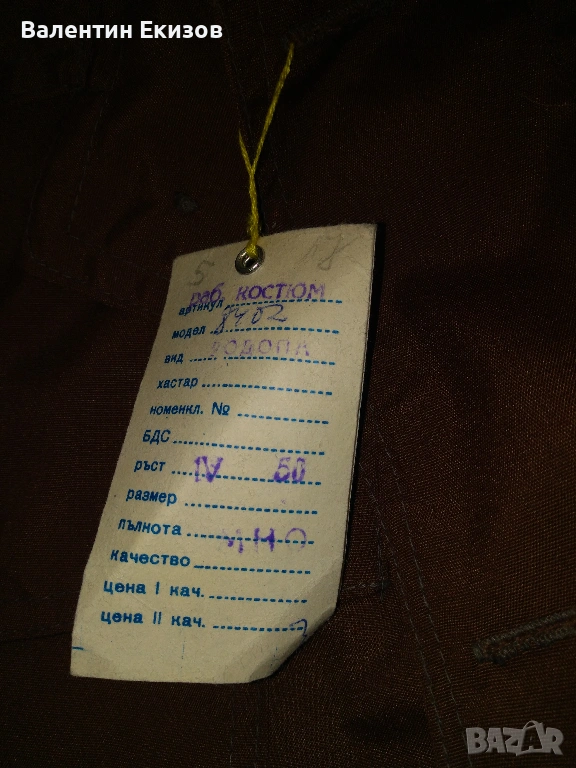 Валентин Екизов
5 18
раб. костюм
артикул
модел 8402
вид РОДОПА
хастар
номенкл. №
БДС
ръст IV 50
размер
пълнота МНО
качество
цена I кач.
цена II кач.
BAZAR